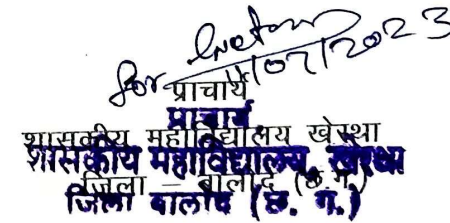 for
11/07/2023
प्राचार्य
प्राचार्य
शासकीय महाविद्यालय खेरथा
शासकीय महाविद्यालय, खेरथा
जिला – बालोद (छ.ग.)
जिला बालोद (छ. ग.)